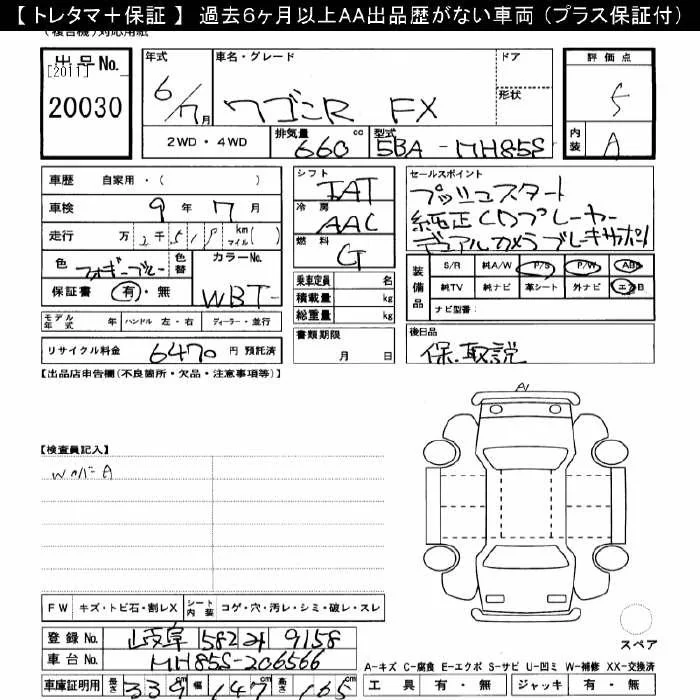 【 トレタマ＋保証 】 過去6ヶ月以上AA出品歴がない車両 （プラス保証付）
(複合機)対応用紙
出品 No.
[2011]
20030
年式
6/7月
車名・グレード
ワゴンR FX
ドア
形状
評価点
5
内装
A
2WD・4WD
排気量 660 cc
型式 5BA-MH85S
車歴 自家用・( )
車検 9年7月
走行 万2千5 1 km マイル( )
色 フォギーブルー
色替
カラーNo. WBT-
保証書 有・無
モデル年式 年 ハンドル 左・右 ディーラー・並行
リサイクル料金 6470 円 預託済
シフト IAT
冷房 AAC
燃料 G
乗車定員 名
積載量 kg
総重量 kg
書類期限
月 日
セールスポイント
プッシュスタート
純正CDプレーヤー
デュアルカメラブレーキサポート
装備品
S/R 純A/W P/S P/W ABS
純TV 純ナビ 革シート 外ナビ エアB
ナビ型番:
後日品
保.取説
【出品店申告欄(不良箇所・欠品・注意事項等)】
【検査員記入】
WカバーA
A1
FW キズ・トビ石・割レX シート内装 コゲ・穴・汚レ・シミ・破レ・スレ
登録 No. 岐阜 582 9158
車台 No. MH85S-206566
車庫証明用 長さ 339 cm 幅 147 cm 高さ 165 cm
スペア
A-キズ C-腐食 E-エクボ S-サビ U-凹ミ W-補修 XX-交換済
工具 有・無 ジャッキ 有・無